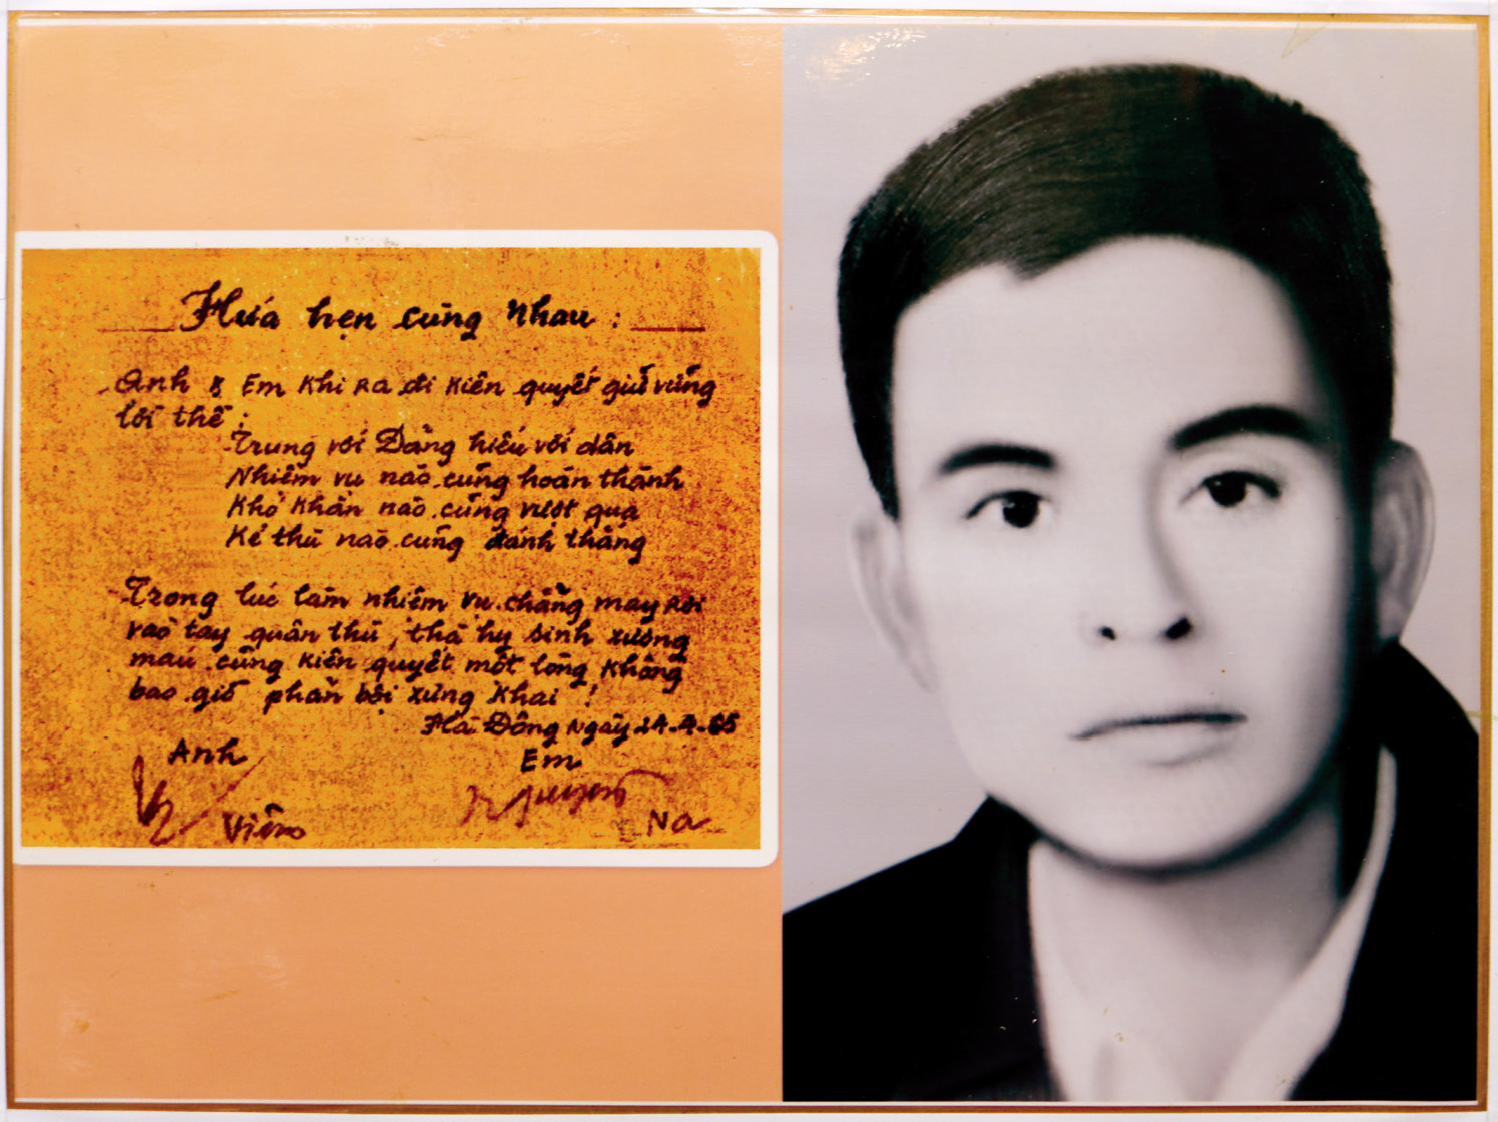 Hứa hẹn cùng nhau :
Anh & Em khi ra đi kiên quyết giữ vững
lời thề :
Trung với Đảng hiếu với dân
Nhiệm vụ nào cũng hoàn thành
Khó khăn nào cũng vượt qua
Kẻ thù nào cũng đánh thắng
Trong lúc làm nhiệm vụ chẳng may rơi
vào tay quân thù, thà hy sinh xương
máu cũng kiên quyết một lòng không
bao giờ phản bội xưng khai !
Hà Đông ngày 24-4-65
Anh Em
Viêm Nguyen
Na